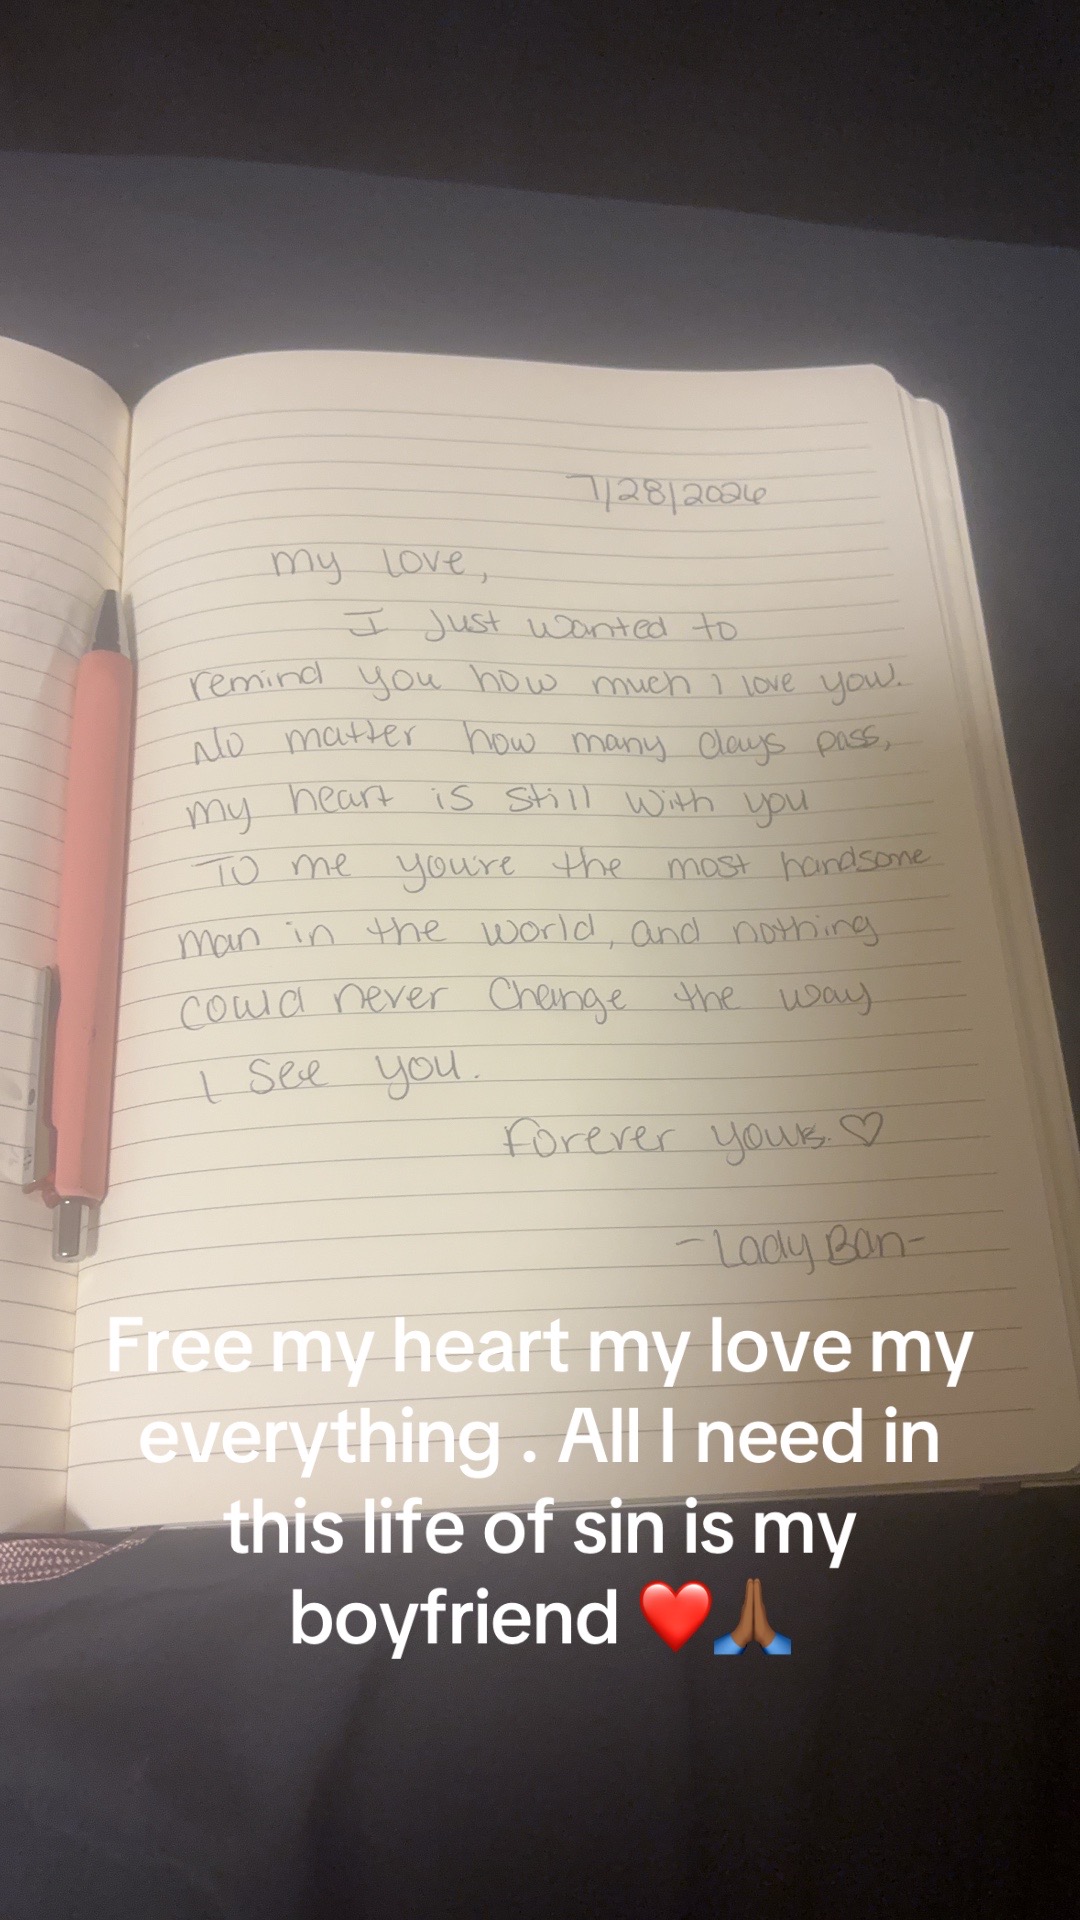 7/28/2026
my love,
I Just wanted to
remind you how much I love you.
No matter how many days pass,
my heart is still with you
To me you're the most handsome
man in the world, and nothing
could never change the way
I see you.
Forever yours. ♡
-Lady Ban-
Free my heart my love my
everything . All I need in
this life of sin is my
boyfriend ❤️🙏🏾